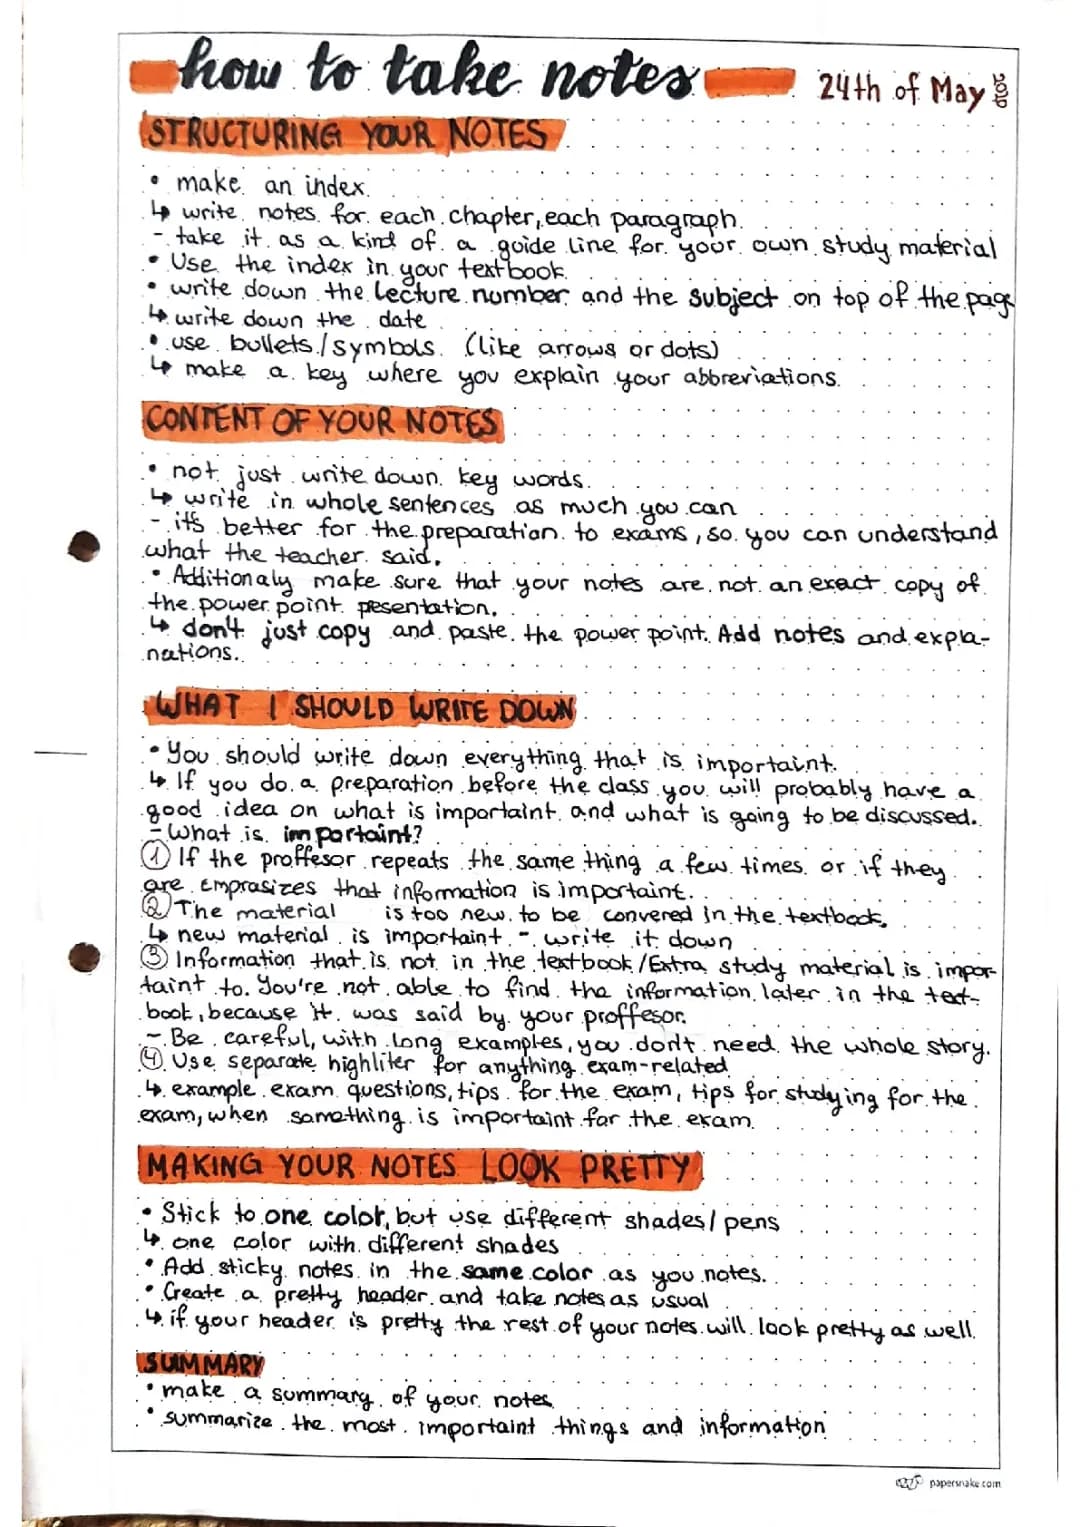 how to take notes 24th of May 2020
STRUCTURING YOUR NOTES
• make an index.
↳ write notes for each chapter, each paragraph.
- take it as a kind of a guide line for your own study material
• Use the index in your textbook.
• write down the lecture number and the subject on top of the page
↳ write down the date
• use bullets/symbols. (like arrows or dots)
↳ make a key where you explain your abbreviations.
CONTENT OF YOUR NOTES
• not just write down key words.
↳ write in whole sentences as much you can
- it's better for the preparation to exams, so you can understand
what the teacher said.
• Additionaly make sure that your notes are not an exact copy of
the power point pesentation.
↳ don't just copy and paste the power point. Add notes and expla-
nations.
WHAT I SHOULD WRITE DOWN
• You should write down everything that is importaint.
↳ If you do a preparation before the class you will probably have a
good idea on what is importaint and what is going to be discussed.
- What is importaint?
① If the proffesor repeats the same thing a few times or if they
are emprasizes that information is importaint.
② The material is too new to be convered in the textbook,
↳ new material is importaint - write it down
③ Information that is not in the textbook/Extra study material is impor-
taint to. You're not able to find the information later in the text-
book, because it was said by your proffesor.
- Be careful, with long examples, you don't need the whole story.
④ Use separate highliter for anything exam-related
↳ example exam questions, tips for the exam, tips for studying for the
exam, when something is importaint for the exam
MAKING YOUR NOTES LOOK PRETTY
• Stick to one color, but use different shades/pens
↳ one color with different shades
• Add sticky notes in the same color as you notes.
• Create a pretty header and take notes as usual
↳ if your header is pretty the rest of your notes will look pretty as well.
SUMMARY
• make a summary of your notes
• summarize the most importaint things and information
papersnake.com